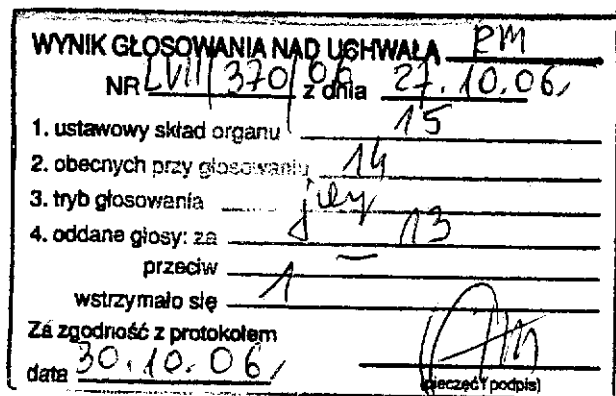 WYNIK GŁOSOWANIA NAD UCHWAŁĄ RM
NR LVII/370/06 z dnia 27.10.06,
1. ustawowy skład organu 15
2. obecnych przy głosowaniu 14
3. tryb głosowania
4. oddane głosy: za 13
przeciw –
wstrzymało się 1
Za zgodność z protokołem
data 30.10.06,
(pieczęć i podpis)